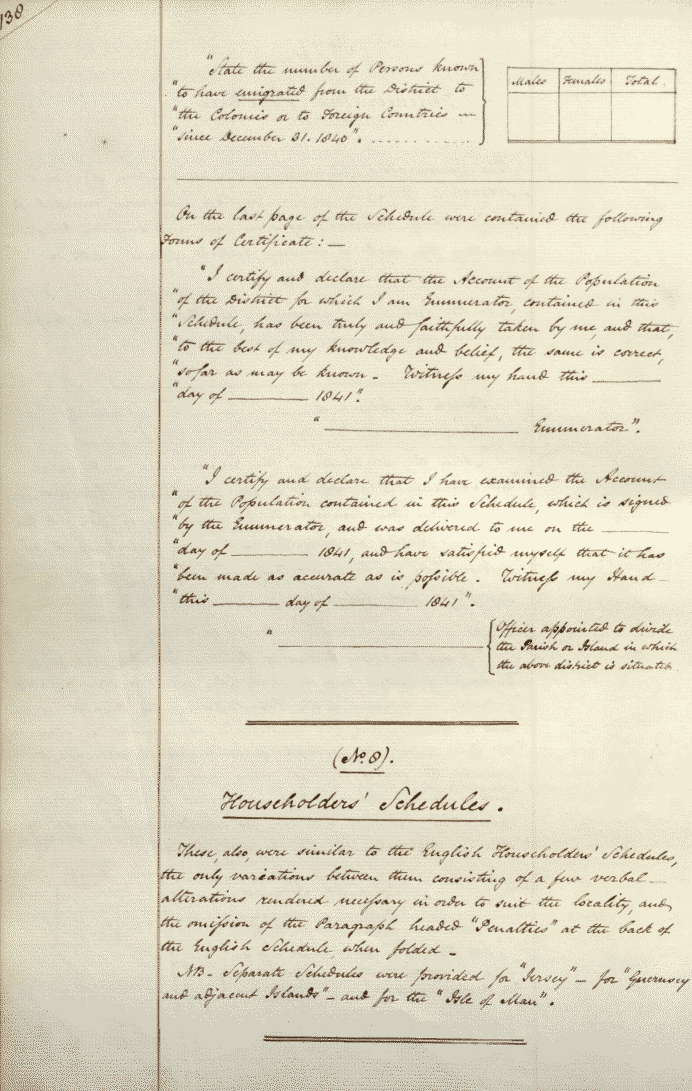 138
"State the number of Persons known
"to have emigrated from the District to
"the Colonies or to Foreign Countries –
"since December 31. 1840". . . . . . . . . . . .
Males Females Total.
On the last page of the Schedule were contained the following
Forms of Certificate: —
"I certify and declare that the Account of the Population
"of the District for which I am Enumerator, contained in this
"Schedule, has been truly and faithfully taken by me, and that,
"to the best of my knowledge and belief, the same is correct,
"so far as may be known – Witness my hand this ______
"day of ______ 1841".
"______ Enumerator".
"I certify and declare that I have examined the Account
"of the Population contained in this Schedule, which is signed
"by the Enumerator, and was delivered to me on the ______
"day of ______ 1841, and have satisfied myself that it has
"been made as accurate as is possible. Witness my Hand –
"this ______ day of ______ 1841".
"______ Officer appointed to divide
the Parish or Island in which
the above district is situated.
(No. 8).
Householders' Schedules.
These, also, were similar to the English Householders' Schedules,
the only variations between them consisting of a few verbal –
alterations rendered necessary in order to suit the locality, and
the omission of the Paragraph headed "Penalties" at the back of
the English Schedule when folded –
NB – Separate Schedules were provided for "Jersey" – for "Guernsey
and adjacent Islands" – and for the "Isle of Man".